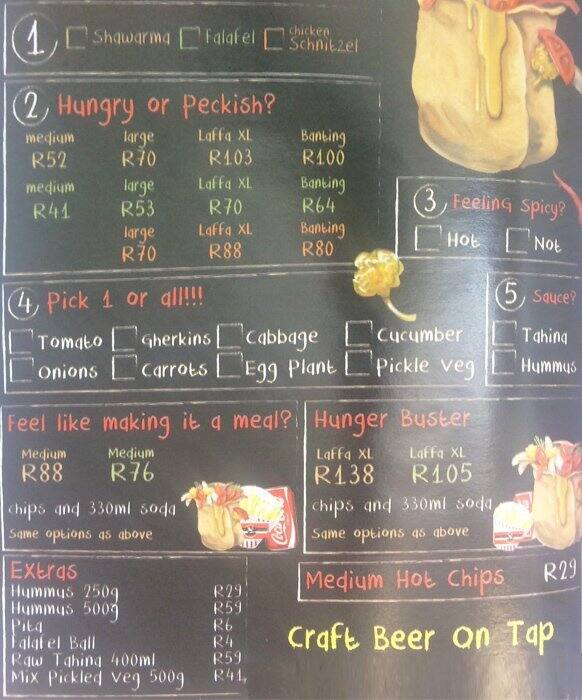 1 Shawarma Falafel chicken Schnitzel
2 Hungry or Peckish?
medium large Laffa XL Banting
R52 R70 R103 R100
medium large Laffa XL Banting
R41 R53 R70 R64
large Laffa XL Banting
R70 R88 R80
3 Feeling Spicy?
Hot Not
4 Pick 1 or all!!!
Tomato Gherkins Cabbage Cucumber
Onions Carrots Egg Plant Pickle veg
5 Sauce?
Tahina
Hummus
Feel like making it a meal?
Medium Medium
R88 R76
chips and 330ml soda
Same options as above
Hunger Buster
Laffa XL Laffa XL
R138 R105
chips and 330ml soda
Same options as above
Extras
Hummus 250g R29
Hummus 500g R59
Pita R6
Falafel Ball R4
Raw Tahina 400ml R59
Mix Pickled Veg 500g R41
Medium Hot Chips R29
Craft Beer On Tap
Coca-Cola